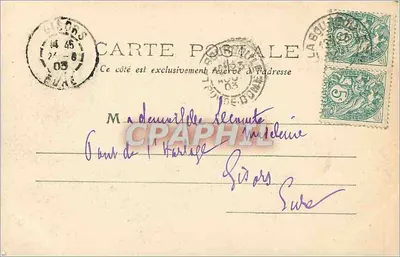 GISORS
14 45
03
EURE
CARTE POSTALE
Ce côté est exclusivement réservé à l'adresse
LA BOURBOULE
PUY-DE-DOME
03
5
CPARAMA
Mademoiselle Lecomte
Madeleine
Pont de l'
Gisors
Eure